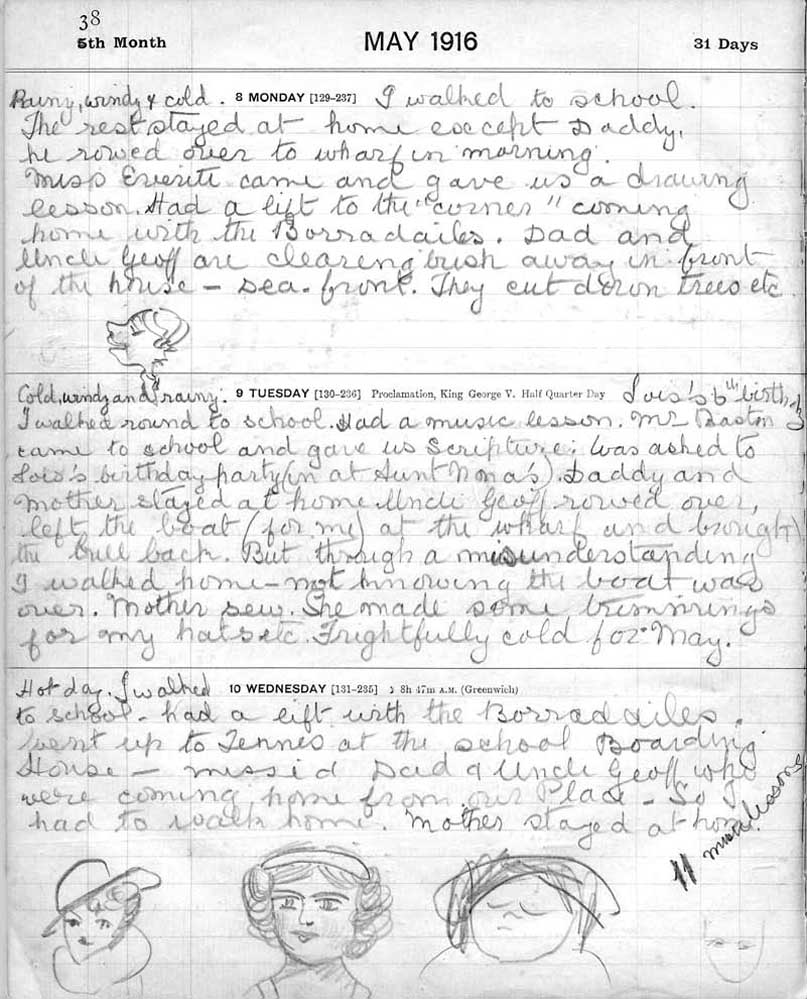 38
5th Month MAY 1916 31 Days
Rainy, windy & cold. 8 MONDAY [129-237] I walked to school.
The rest stayed at home except Daddy,
he rowed over to wharf in morning.
Miss Everitt came and gave us a drawing
lesson. Had a lift to the "corner" coming
home with the Borradailes. Dad and
Uncle Geoff are clearing bush away in front
of the house - sea-front. They cut down trees etc
Cold, windy and rainy. 9 TUESDAY [130-236] Proclamation, King George V. Half Quarter Day Lois's 6th birthday
I walked round to school. Had a music lesson. Mr Baston
came to school and gave us Scripture. Was asked to
Lois's birthday party (in at Aunt Nona's). Daddy and
Mother stayed at home. Uncle Geoff rowed over,
left the boat (for me) at the wharf and brought
the bull back. But through a misunderstanding
I walked home - not knowing the boat was
over. Mother sew. She made some trimmings
for my hats etc. Frightfully cold for May.
Hot day. I walked 10 WEDNESDAY [131-235] ☽ 8h 47m A.M. (Greenwich)
to school - had a lift with the Borradailes.
Went up to Tennis at the school Boarding
House - missed Dad & Uncle Geoff who
were coming home from our Place - So I
had to walk home. Mother stayed at home.
11 music lessons